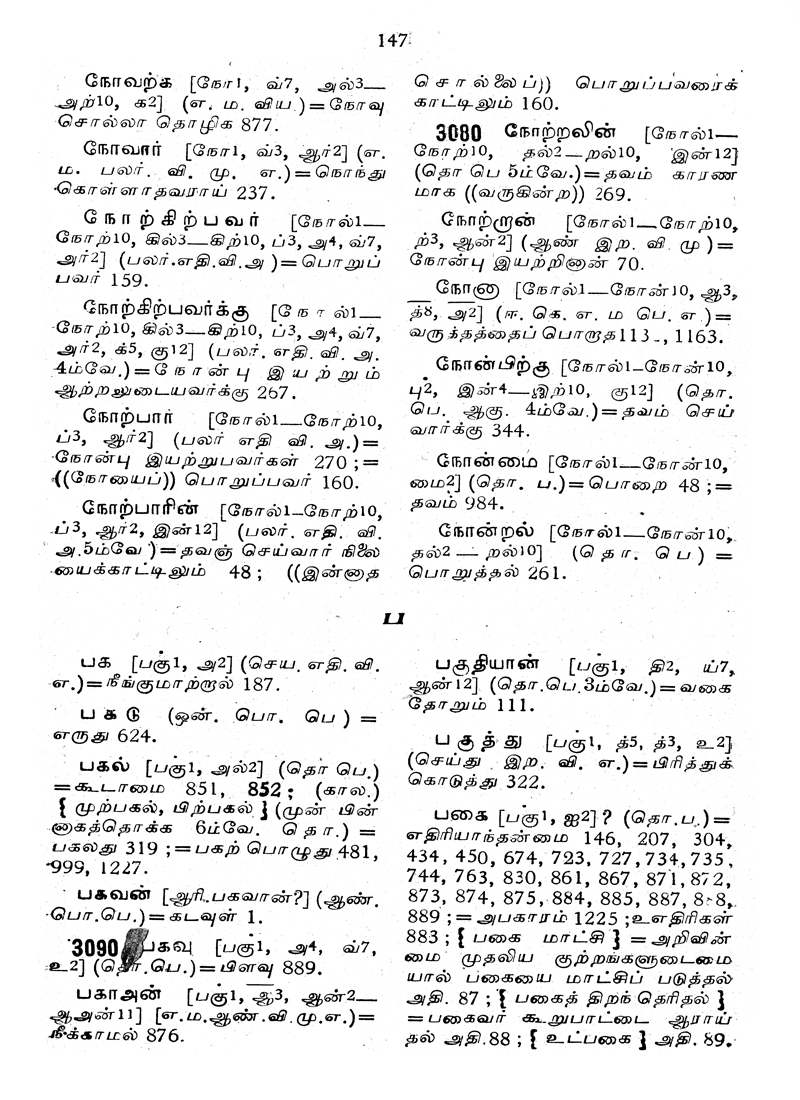 147
நோவற்க [நோ1, வ்7, அல்3—
அற்10, க2] (எ. ம. விய.)=நோவு
சொல்லா தொழிக 877.
நோவார் [நோ1, வ்3, ஆர்2] (எ.
ம. பலர். வி. மு. எ.)=நொந்து
கொள்ளாதவராய் 237.
நோற்கிற்பவர் [நோல்1—
நோற்10, கில்3—கிற்10, ப்3, அ4, வ்7,
அர்2] (பலர்.எதி.வி.அ )=பொறுப்
பவர் 159.
நோற்கிற்பவர்க்கு [நோல்1—
நோற்10, கில்3—கிற்10, ப்3, அ4, வ்7,
அர்2, க்5, கு12] (பலர். எதி. வி. அ.
4ம்வே.)=நோன்பு இயற்றும்
ஆற்றலுடையவர்க்கு 267.
நோற்பார் [நோல்1—நோற்10,
ப்3, ஆர்2] (பலர் எதி வி. அ.)=
நோன்பு இயற்றுபவர்கள் 270 ;=
((நோயைப்)) பொறுப்பவர் 160.
நோற்பாரின் [நோல்1—நோற்10,
ப்3, ஆர்2, இன்12] (பலர். எதி. வி.
அ.5ம்வே )=தவஞ் செய்வார் நிலை
யைக்காட்டிலும் 48 ; ((இன்னாத
சொல்லைப்)) பொறுப்பவரைக்
காட்டிலும் 160.
3080 நோற்றலின் [நோல்1—
நோற்10, தல்2—றல்10, இன்12]
(தொ பெ 5ம்வே.)=தவம் காரண
மாக ((வருகின்ற)) 269.
நோற்றான் [நோல்1—நோற்10,
ற்3, ஆன்2] (ஆண் இற. வி. மு )=
நோன்பு இயற்றினான் 70.
நோனா [நோல்1—நோன்10, ஆ3,
த்8, அ2] (ஈ. கெ. எ. ம பெ. எ )=
வருத்தத்தைப் பொறாத113-, 1163.
நோன்பிற்கு [நோல்1—நோன்10,
பு2, இன்4—இற்10, கு12] (தொ.
பெ. ஆகு. 4ம்வே.)=தவம் செய்
வார்க்கு 344.
நோன்மை [நோல்1—நோன்10,
மை2] (தொ. ப.)=பொறை 48 ;=
தவம் 984.
நோன்றல் [நோல்1—நோன்10,
தல்2— றல்10] (தொ. பெ ) =
பொறுத்தல் 261.
ப
பக [பகு1, அ2] (செய. எதி. வி.
எ.)=நீங்குமாற்றால் 187.
பகடு (ஒன். பொ. பெ ) =
எருது 624.
பகல் [பகு1, அல்2] (தொ பெ.)
=கூடாமை 851, 852; (கால.)
{ முற்பகல், பிற்பகல் } (முன் பின்
னாகத்தொக்க 6ம்வே. தொ.) =
பகலது 319 ;=பகற் பொழுது 481,
999, 1227.
பகவன் [ஆரி.பகவான்?] (ஆண்.
பொ.பெ.)=கடவுள் 1.
3090 பகவு [பகு1, அ4, வ்7,
உ2] (தொ.பெ.)=பிளவு 889.
பகாஅன் [பகு1, ஆ3, ஆன்2—
ஆஅன்11] [எ.ம.ஆண்.வி.மு.எ.)=
நீக்காமல் 876.
பகுதியான் [பகு1, தி2, ய்7,
ஆன்12] (தொ.பெ.3ம்வே.)=வகை
தோறும் 111.
பகுத்து [பகு1, த்5, த்3, உ2]
(செய்து இற. வி. எ.)=பிரித்துக்
கொடுத்து 322.
பகை [பகு1, ஐ2]? (தொ.ப.)=
எதிரியாந்தன்மை 146, 207, 304,
434, 450, 674, 723, 727,734,735,
744, 763, 830, 861, 867, 871,872,
873, 874, 875, 884, 885, 887,
889 ;=அபகாரம் 1225 ;உஎதிரிகள்
883 ; { பகை மாட்சி } =அறிவின்
மை முதலிய குற்றங்களுடைமை
யால் பகையை மாட்சிப் படுத்தல்
அதி. 87 ; { பகைத் திறந் தெரிதல் }
=பகைவர் கூறுபாட்டை ஆராய்
தல் அதி.88 ; { உட்பகை } அதி. 89.